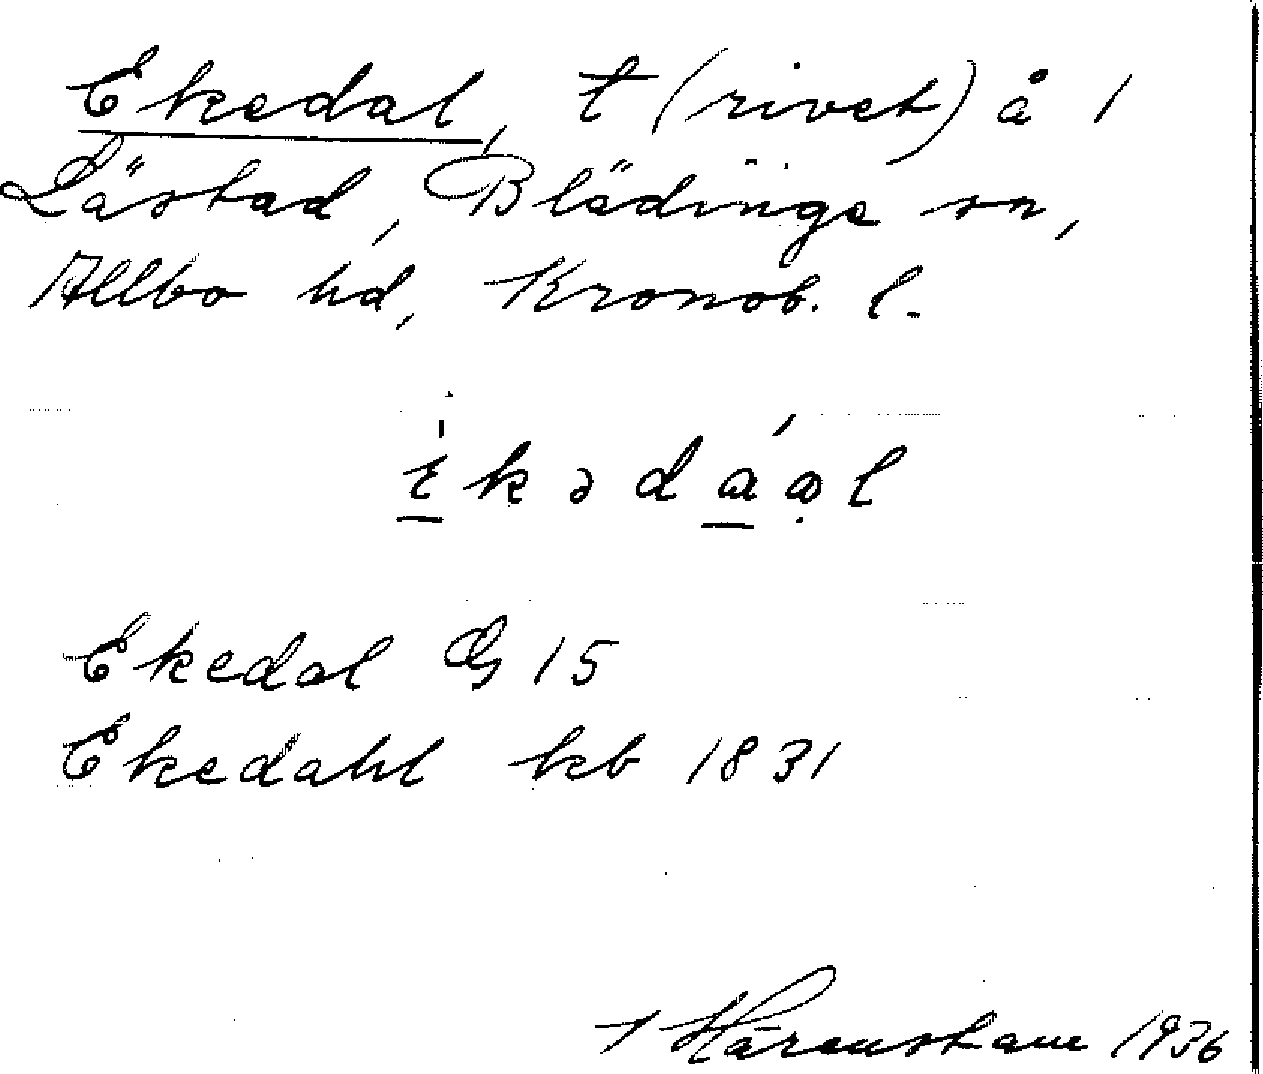 Ekedal, t (rivet) å 1
Lästad, Blädinge sn,
Allbo hd, Kronob. l.
ɛkədáal
Ekedal G 15
Ekedahl kb 1831
1936